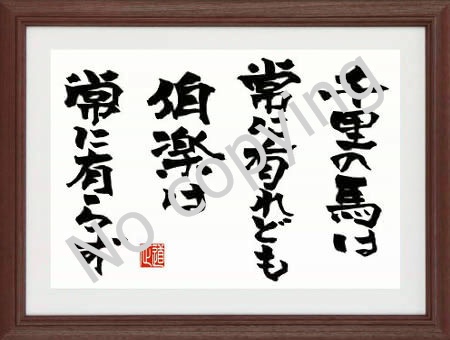 千里の馬は
常に有れども
伯楽は
常に有らず
No copying